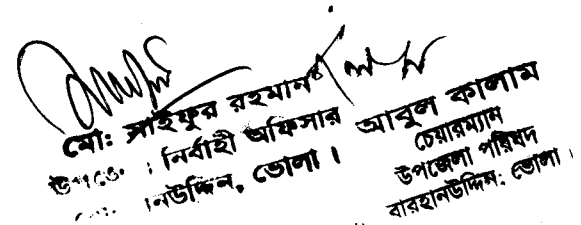 মো: সাইফুর রহমান
নির্বাহী অফিসার
ভোলা ।
আবুল কালাম
চেয়ারম্যান
উপজেলা পরিষদ
বারহানউদ্দিন: ভোলা ।